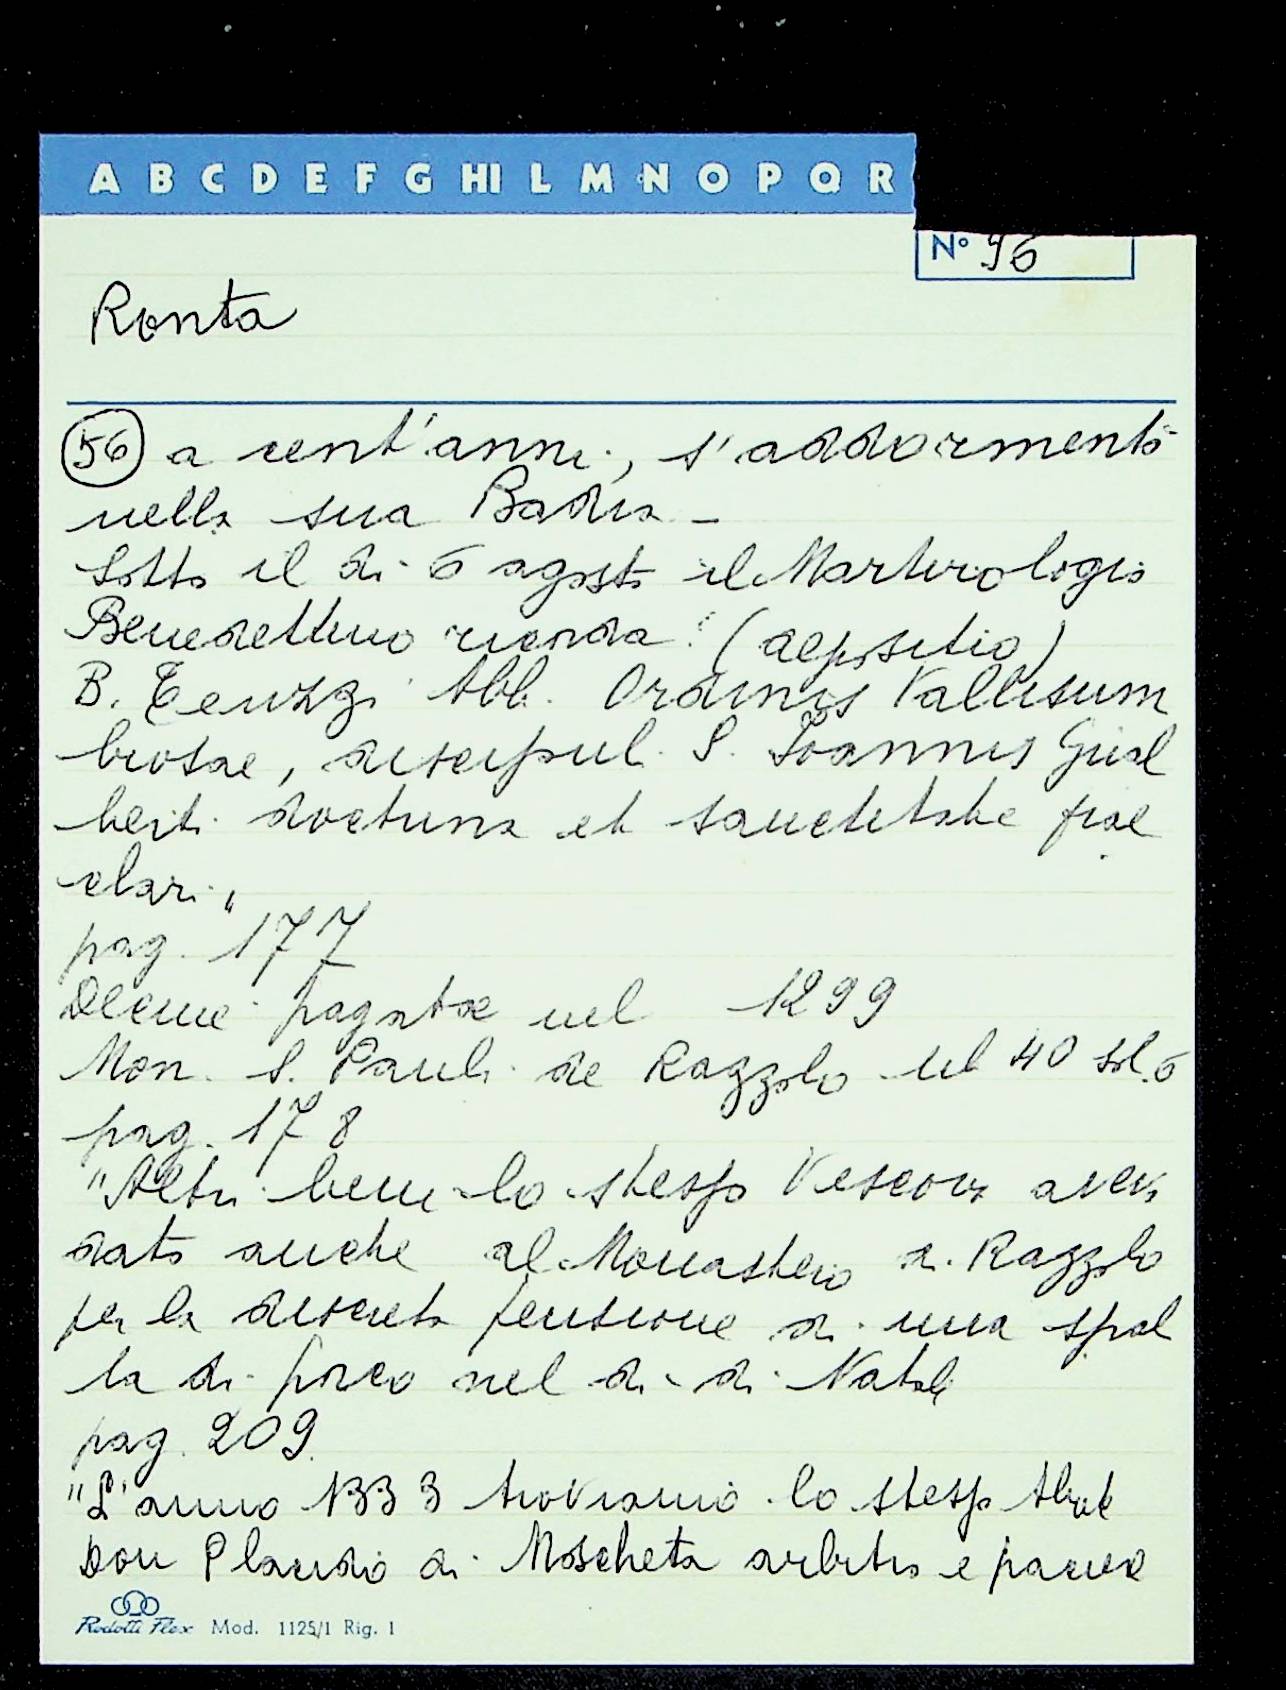 A B C D E F G HI L M N O P Q R
N° 96
Ronta
56 a cent'anni, s'addormentò
nella sua Badia -
Sotto il dì 6 agosto il Martirologio
Benedettino ricorda: "(depositio)
B. Teuzzi Abb. Ordinis Vallisum
brosae, discipul. S. Ioannis Gual
berti doctrina et sanctitate prae
clari"
pag. 177
Decime pagatae nel 1299
Mon. S. Pauli de Razzolo lib 40 sol. 6
pag. 178
"Altri beni lo stesso Vescovo aveva
dato anche al Monastero di Razzolo
per la discreta pensione di una spal
la di porco nel dì di Natale
pag. 209
"L'anno 1333 troviamo lo stesso Abate
Don Placido di Moscheta arbitro e paciere
Rodotti Flex Mod. 1125/1 Rig. 1